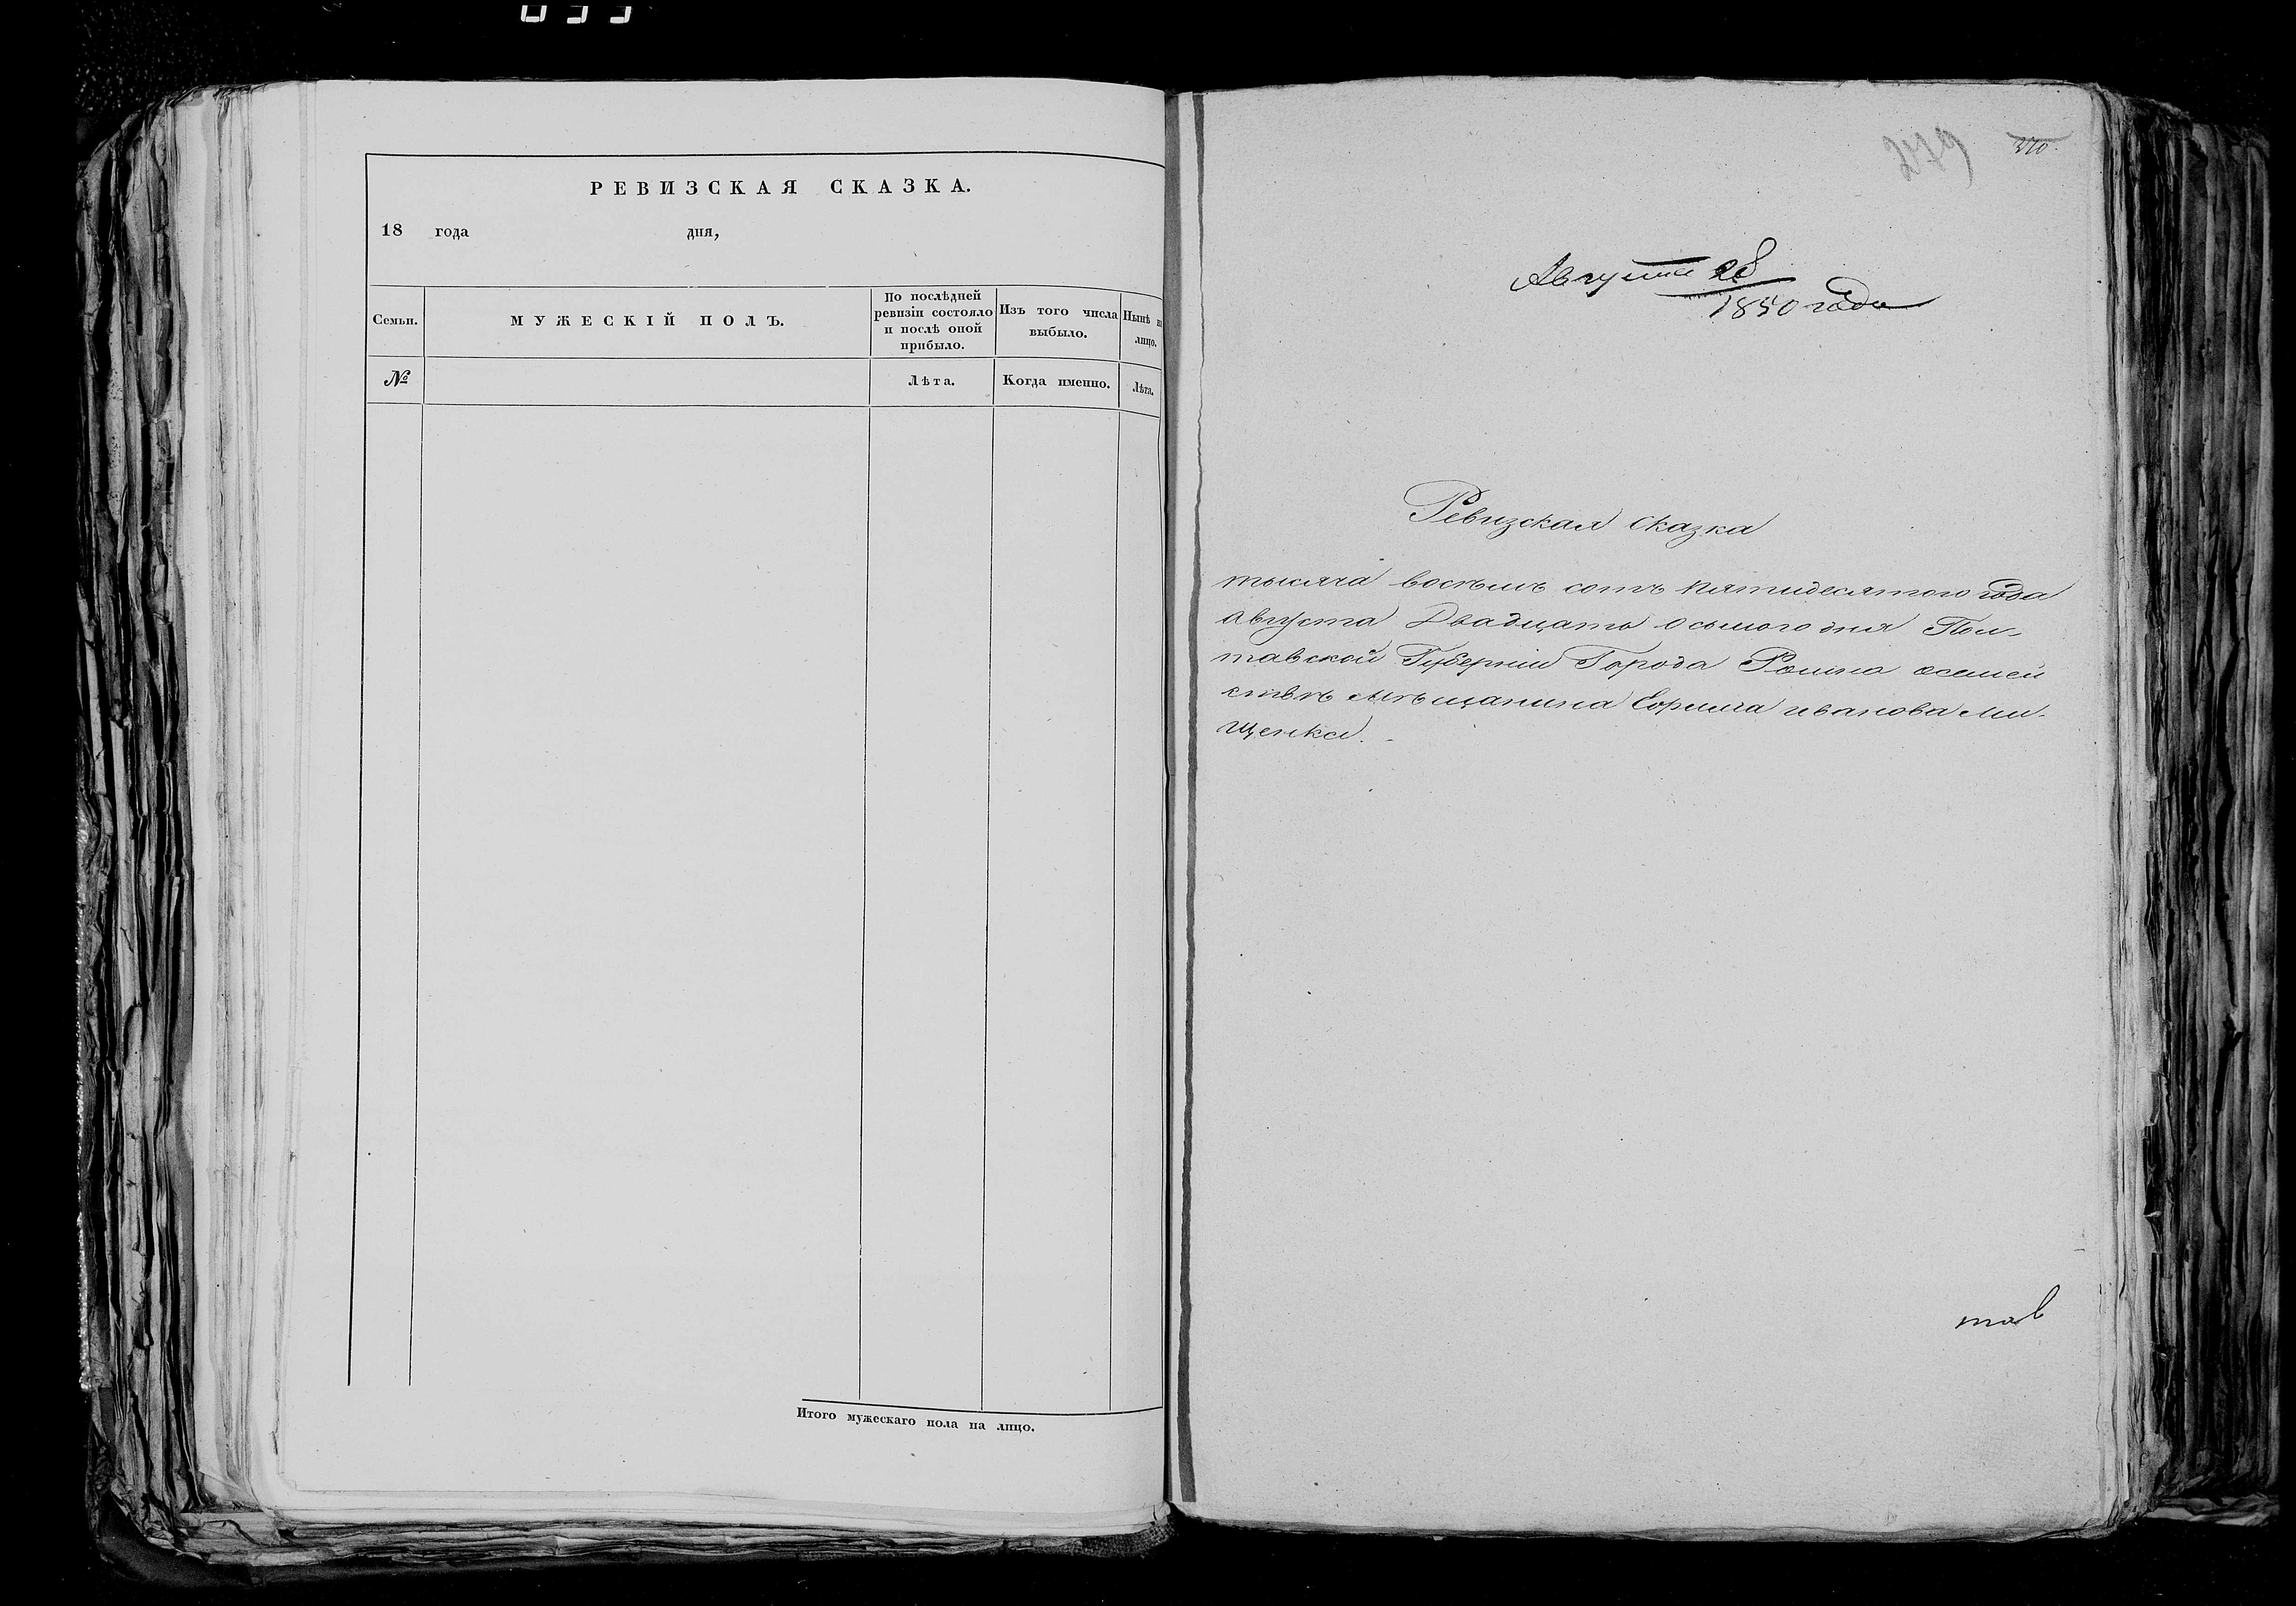 РЕВИЗСКАЯ СКАЗКА.
18 года дня,
Семьи.
МУЖЕСКІЙ ПОЛЪ.
По послѣдней
ревизіи состояло
и послѣ оной
прибыло.
Изъ того числа
выбыло.
Нынѣ
лицо.
№
Лѣта.
Когда именно.
Лѣта.
Итого мужескаго пола на лицо.
279
370.
Августа 28
1850 года
Ревизская Сказка
тысяча восѣмъ сотъ пятидесятого года
Августа Двадцать осьмого дня Пол-
тавской Губерніи Города Ромна осемей
ствѣ Мѣщанина иванова Ми-
щенка.
тав